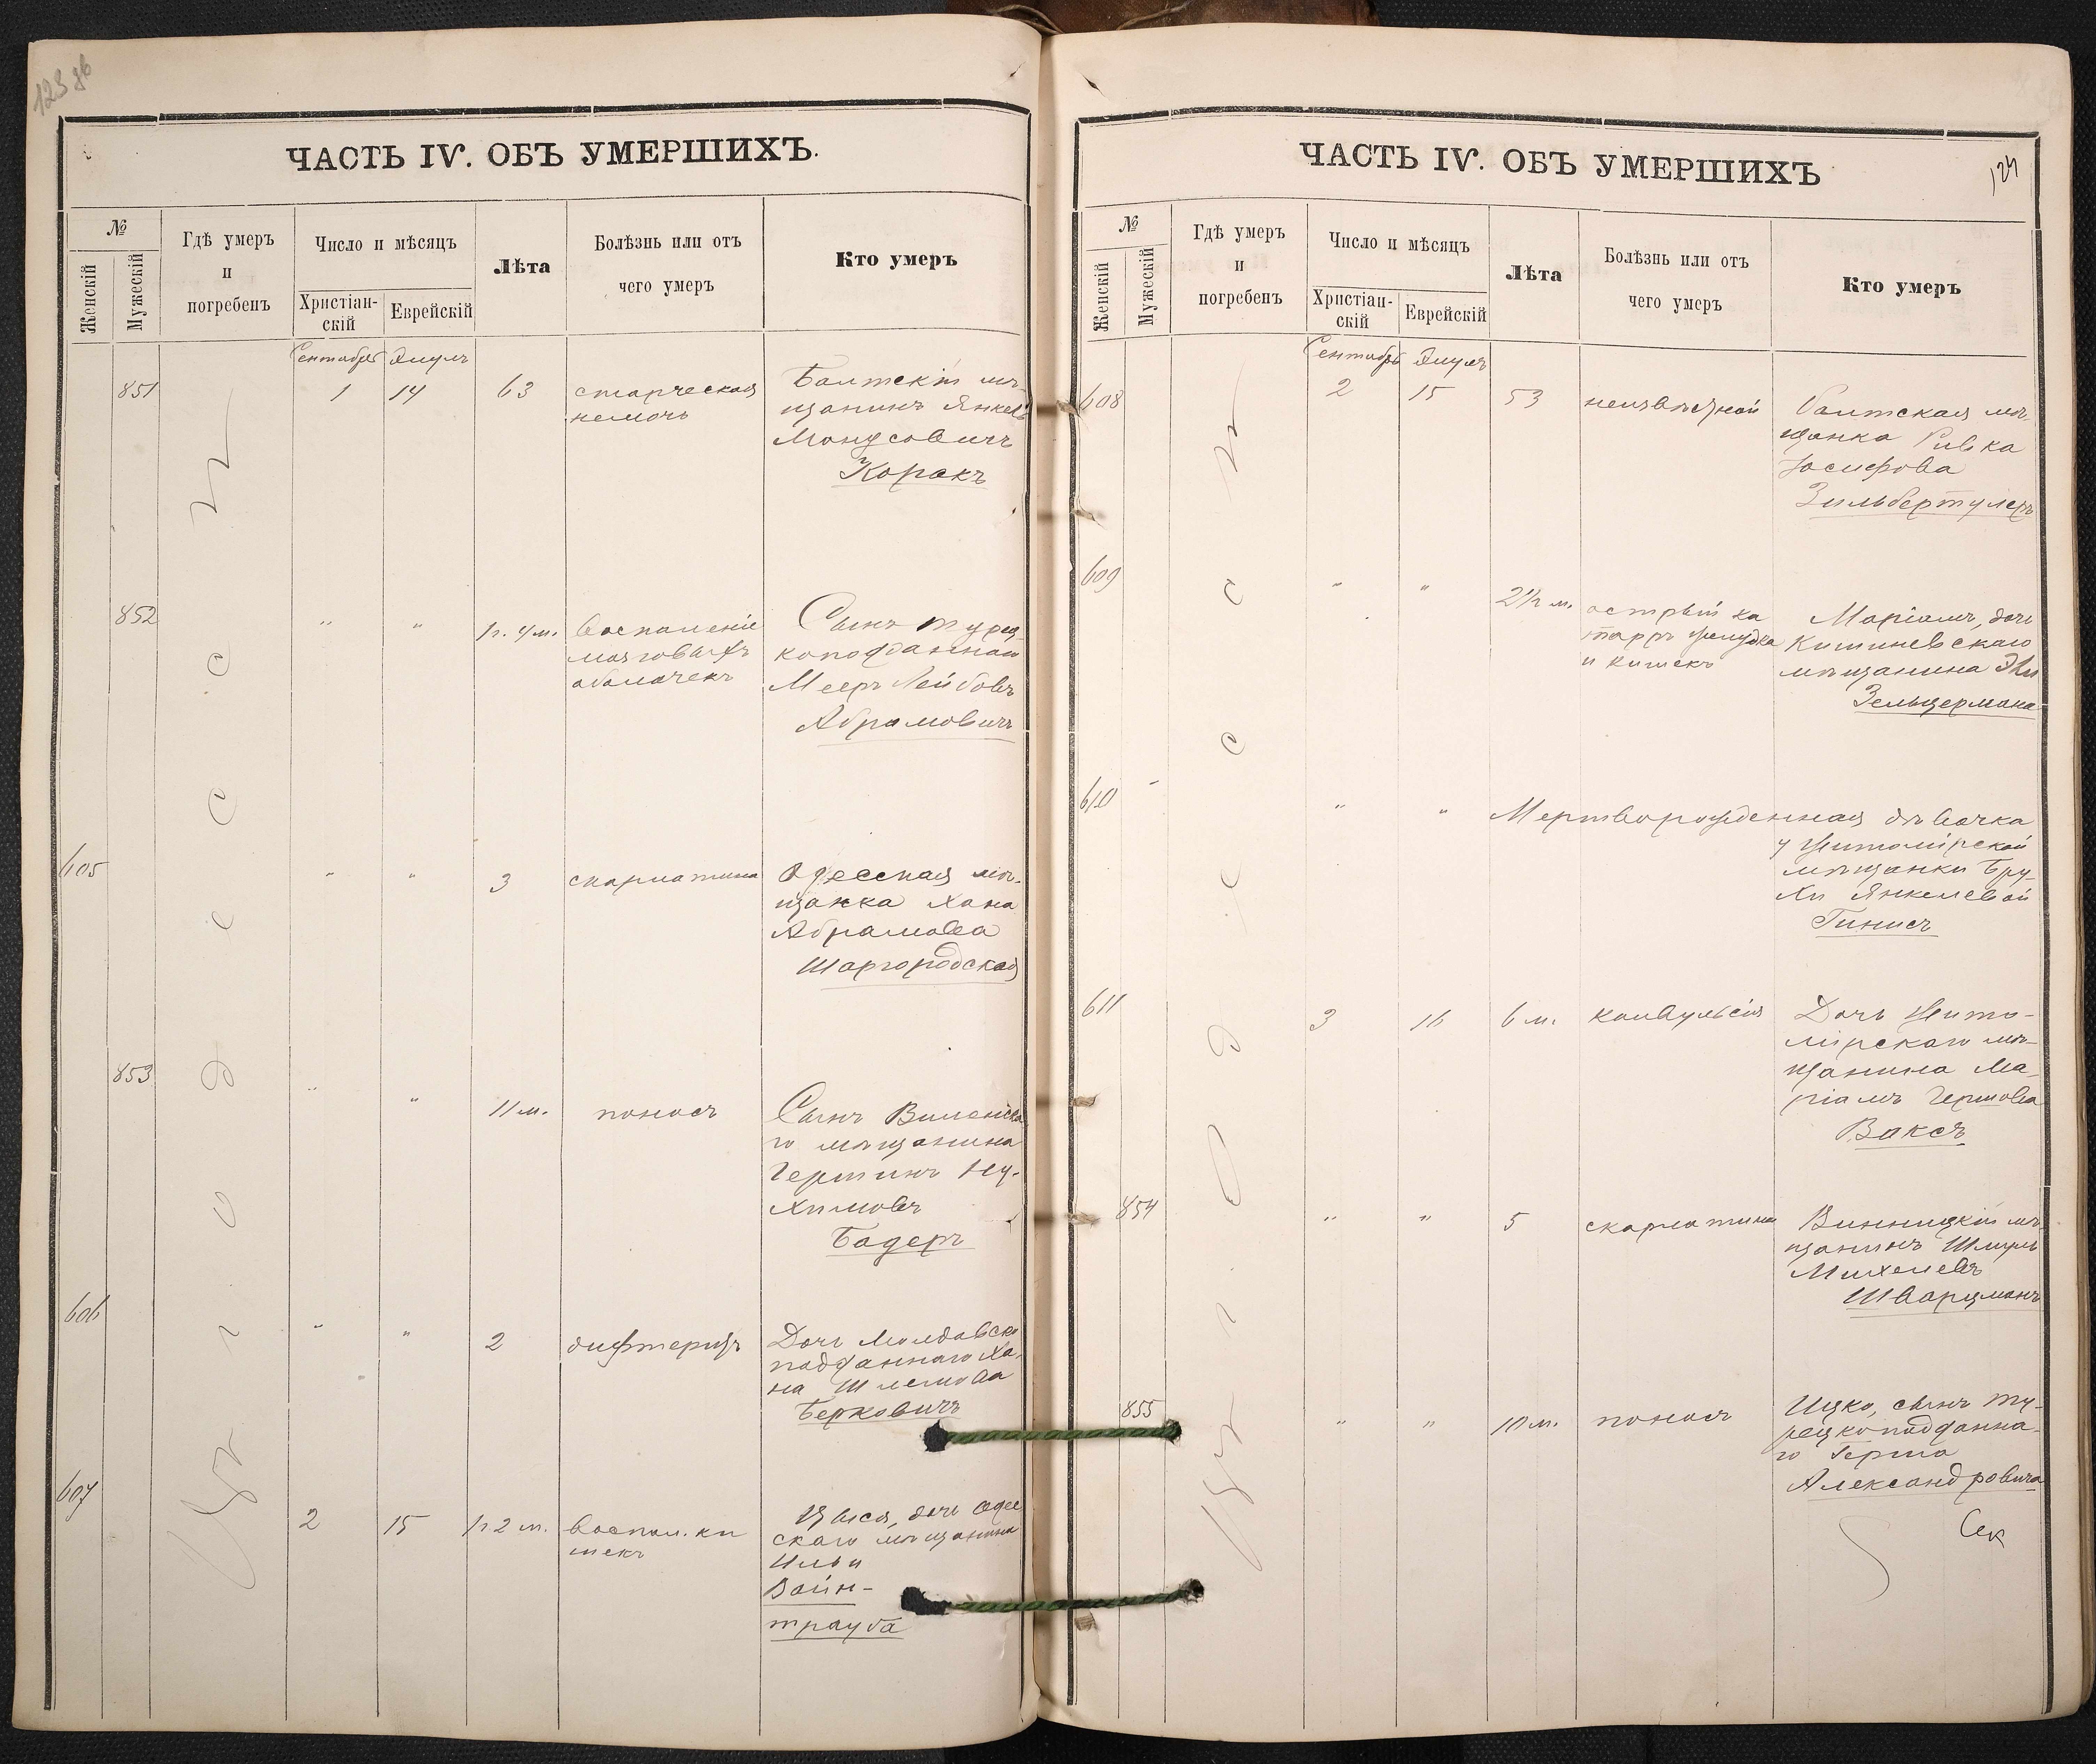 123 об
ЧАСТЬ IV. ОБЪ УМЕРШИХЪ.
№
Женскій
Мужескій
Гдѣ умеръ
и
погребенъ
Число и мѣсяцъ
Христіан-
скій
Еврейскій
Лѣта
Болѣзнь или отъ
чего умеръ
Кто умеръ
Сентябрь Элулъ
въ г. Одессѣ
851 1 14 63 старческая
немочь
Балтскій мѣ-
щанинъ Янкель
Монусовичъ
Коракъ
852 " " 1 г. 4 м. воспаленіе
мозговыхъ
оболочекъ
Сынъ турец-
коподданнаго
Мееръ Лейбовъ
Абрамовичъ
605 " " 3 скарлатина
Одесская мѣ-
щанка Хана
Абрамова
Шаргородская
853 " " 11 м. поносъ
Сынъ Виленска
го мѣщанина
Гершинъ Ну-
химовъ
Бадеръ
606 " " 2 дифтеритъ
Дочь Молдавско
подданнаго Ха-
на Шлемова
Берковичъ
607 2 15 1 г 2 м. воспал. ки
шекъ
дочь Одес
скаго мѣщанина
Ильи
Вайн-
трауба
ЧАСТЬ IV. ОБЪ УМЕРШИХЪ
124
№
Женскій
Мужескій
Гдѣ умеръ
и
погребенъ
Число и мѣсяцъ
Христіан-
скій
Еврейскій
Лѣта
Болѣзнь или отъ
чего умеръ
Кто умеръ
Сентябрь Элулъ
въ г. Одессѣ
608 2 15 53 неизвѣстной
Балтская мѣ-
щанка Ривка
Іосифова
Зильбертулеръ
609 " " 2½ м. острый ка
тарръ желудка
и кишекъ
Маріамъ, дочь
Кишиневскаго
мѣщанина Эли
Зельцермана
610 " " Мертворожденная дѣвочка
у Житомірской
мѣщанки Бру-
хи Янкелевой
Гинисъ
611 3 16 6 м. конвульсія
Дочь Жито-
мірскаго мѣ-
щанина Ма-
ріамъ Гершова
Ваксъ
854 " " 5 скарлатина
Винницкій мѣ-
щанинъ Шмуль
Михелевъ
Шварцманъ
855 " " 10 м. поносъ
Ицко, сынъ ту-
рецкоподданна-
го Герша
Александровича
Сек